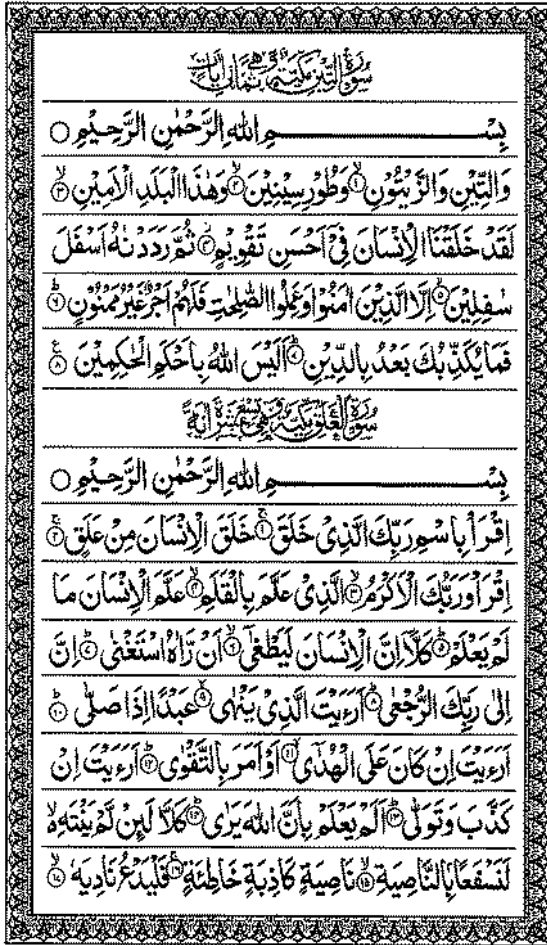 سُوْرَةُ التِّيْنِ مَكِّيَّةٌ وَّهِىَ ثَمَانُ اٰيَاتٍ
بِسْمِ اللّٰهِ الرَّحْمٰنِ الرَّحِيْمِ ○
وَالتِّيْنِ وَالزَّيْتُوْنِ ۙ﴿۱﴾ وَطُوْرِ سِيْنِيْنَ ۙ﴿۲﴾ وَهٰذَا الْبَلَدِ الْاَمِيْنِ ۙ﴿۳﴾
لَقَدْ خَلَقْنَا الْاِنْسَانَ فِيْۤ اَحْسَنِ تَقْوِيْمٍ ﴿۴﴾ ثُمَّ رَدَدْنٰهُ اَسْفَلَ
سٰفِلِيْنَ ۙ﴿۵﴾ اِلَّا الَّذِيْنَ اٰمَنُوْا وَعَمِلُوا الصّٰلِحٰتِ فَلَهُمْ اَجْرٌ غَيْرُ مَمْنُوْنٍ ؕ﴿۶﴾
فَمَا يُكَذِّبُكَ بَعْدُ بِالدِّيْنِ ؕ﴿۷﴾ اَلَيْسَ اللّٰهُ بِاَحْكَمِ الْحٰكِمِيْنَ ﴿۸﴾
سُوْرَةُ الْعَلَقِ مَكِّيَّةٌ وَّهِىَ تِسْعَ عَشَرَةَ اٰيَةً
بِسْمِ اللّٰهِ الرَّحْمٰنِ الرَّحِيْمِ ○
اِقْرَاْ بِاسْمِ رَبِّكَ الَّذِىْ خَلَقَ ۚ﴿۱﴾ خَلَقَ الْاِنْسَانَ مِنْ عَلَقٍ ۚ﴿۲﴾
اِقْرَاْ وَرَبُّكَ الْاَكْرَمُ ۙ﴿۳﴾ الَّذِىْ عَلَّمَ بِالْقَلَمِ ۙ﴿۴﴾ عَلَّمَ الْاِنْسَانَ مَا
لَمْ يَعْلَمْ ؕ﴿۵﴾ كَلَّاۤ اِنَّ الْاِنْسَانَ لَيَطْغٰۤى ۙ﴿۶﴾ اَنْ رَّاٰهُ اسْتَغْنٰى ؕ﴿۷﴾ اِنَّ
اِلٰى رَبِّكَ الرُّجْعٰى ؕ﴿۸﴾ اَرَءَيْتَ الَّذِىْ يَنْهٰى ۙ﴿۹﴾ عَبْدًا اِذَا صَلّٰى ؕ﴿۱۰﴾
اَرَءَيْتَ اِنْ كَانَ عَلَى الْهُدٰٓى ۙ﴿۱۱﴾ اَوْ اَمَرَ بِالتَّقْوٰى ؕ﴿۱۲﴾ اَرَءَيْتَ اِنْ
كَذَّبَ وَتَوَلّٰى ؕ﴿۱۳﴾ اَلَمْ يَعْلَمْ بِاَنَّ اللّٰهَ يَرٰى ؕ﴿۱۴﴾ كَلَّا لَىِٕنْ لَّمْ يَنْتَهِ ۙ
لَنَسْفَعًۢا بِالنَّاصِيَةِ ۙ﴿۱۵﴾ نَاصِيَةٍ كَاذِبَةٍ خَاطِئَةٍ ۚ﴿۱۶﴾ فَلْيَدْعُ نَادِيَهٗ ۙ﴿۱۷﴾